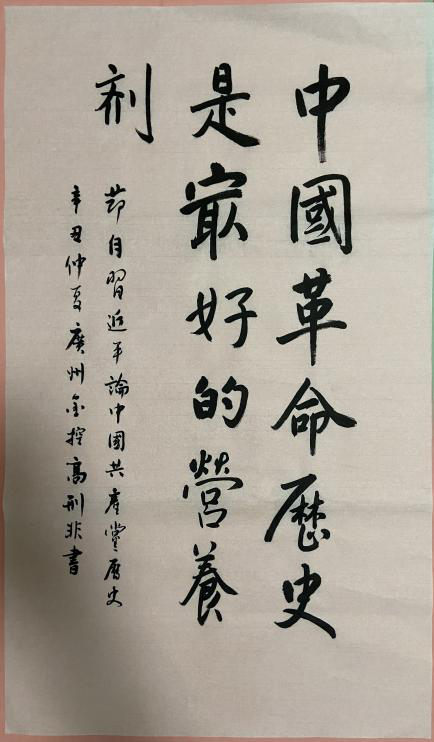 中國革命歷史
是寂好的營養
剂
節自習近平論中國共產黨历史
辛丑仲夏廣州金控高刑非書